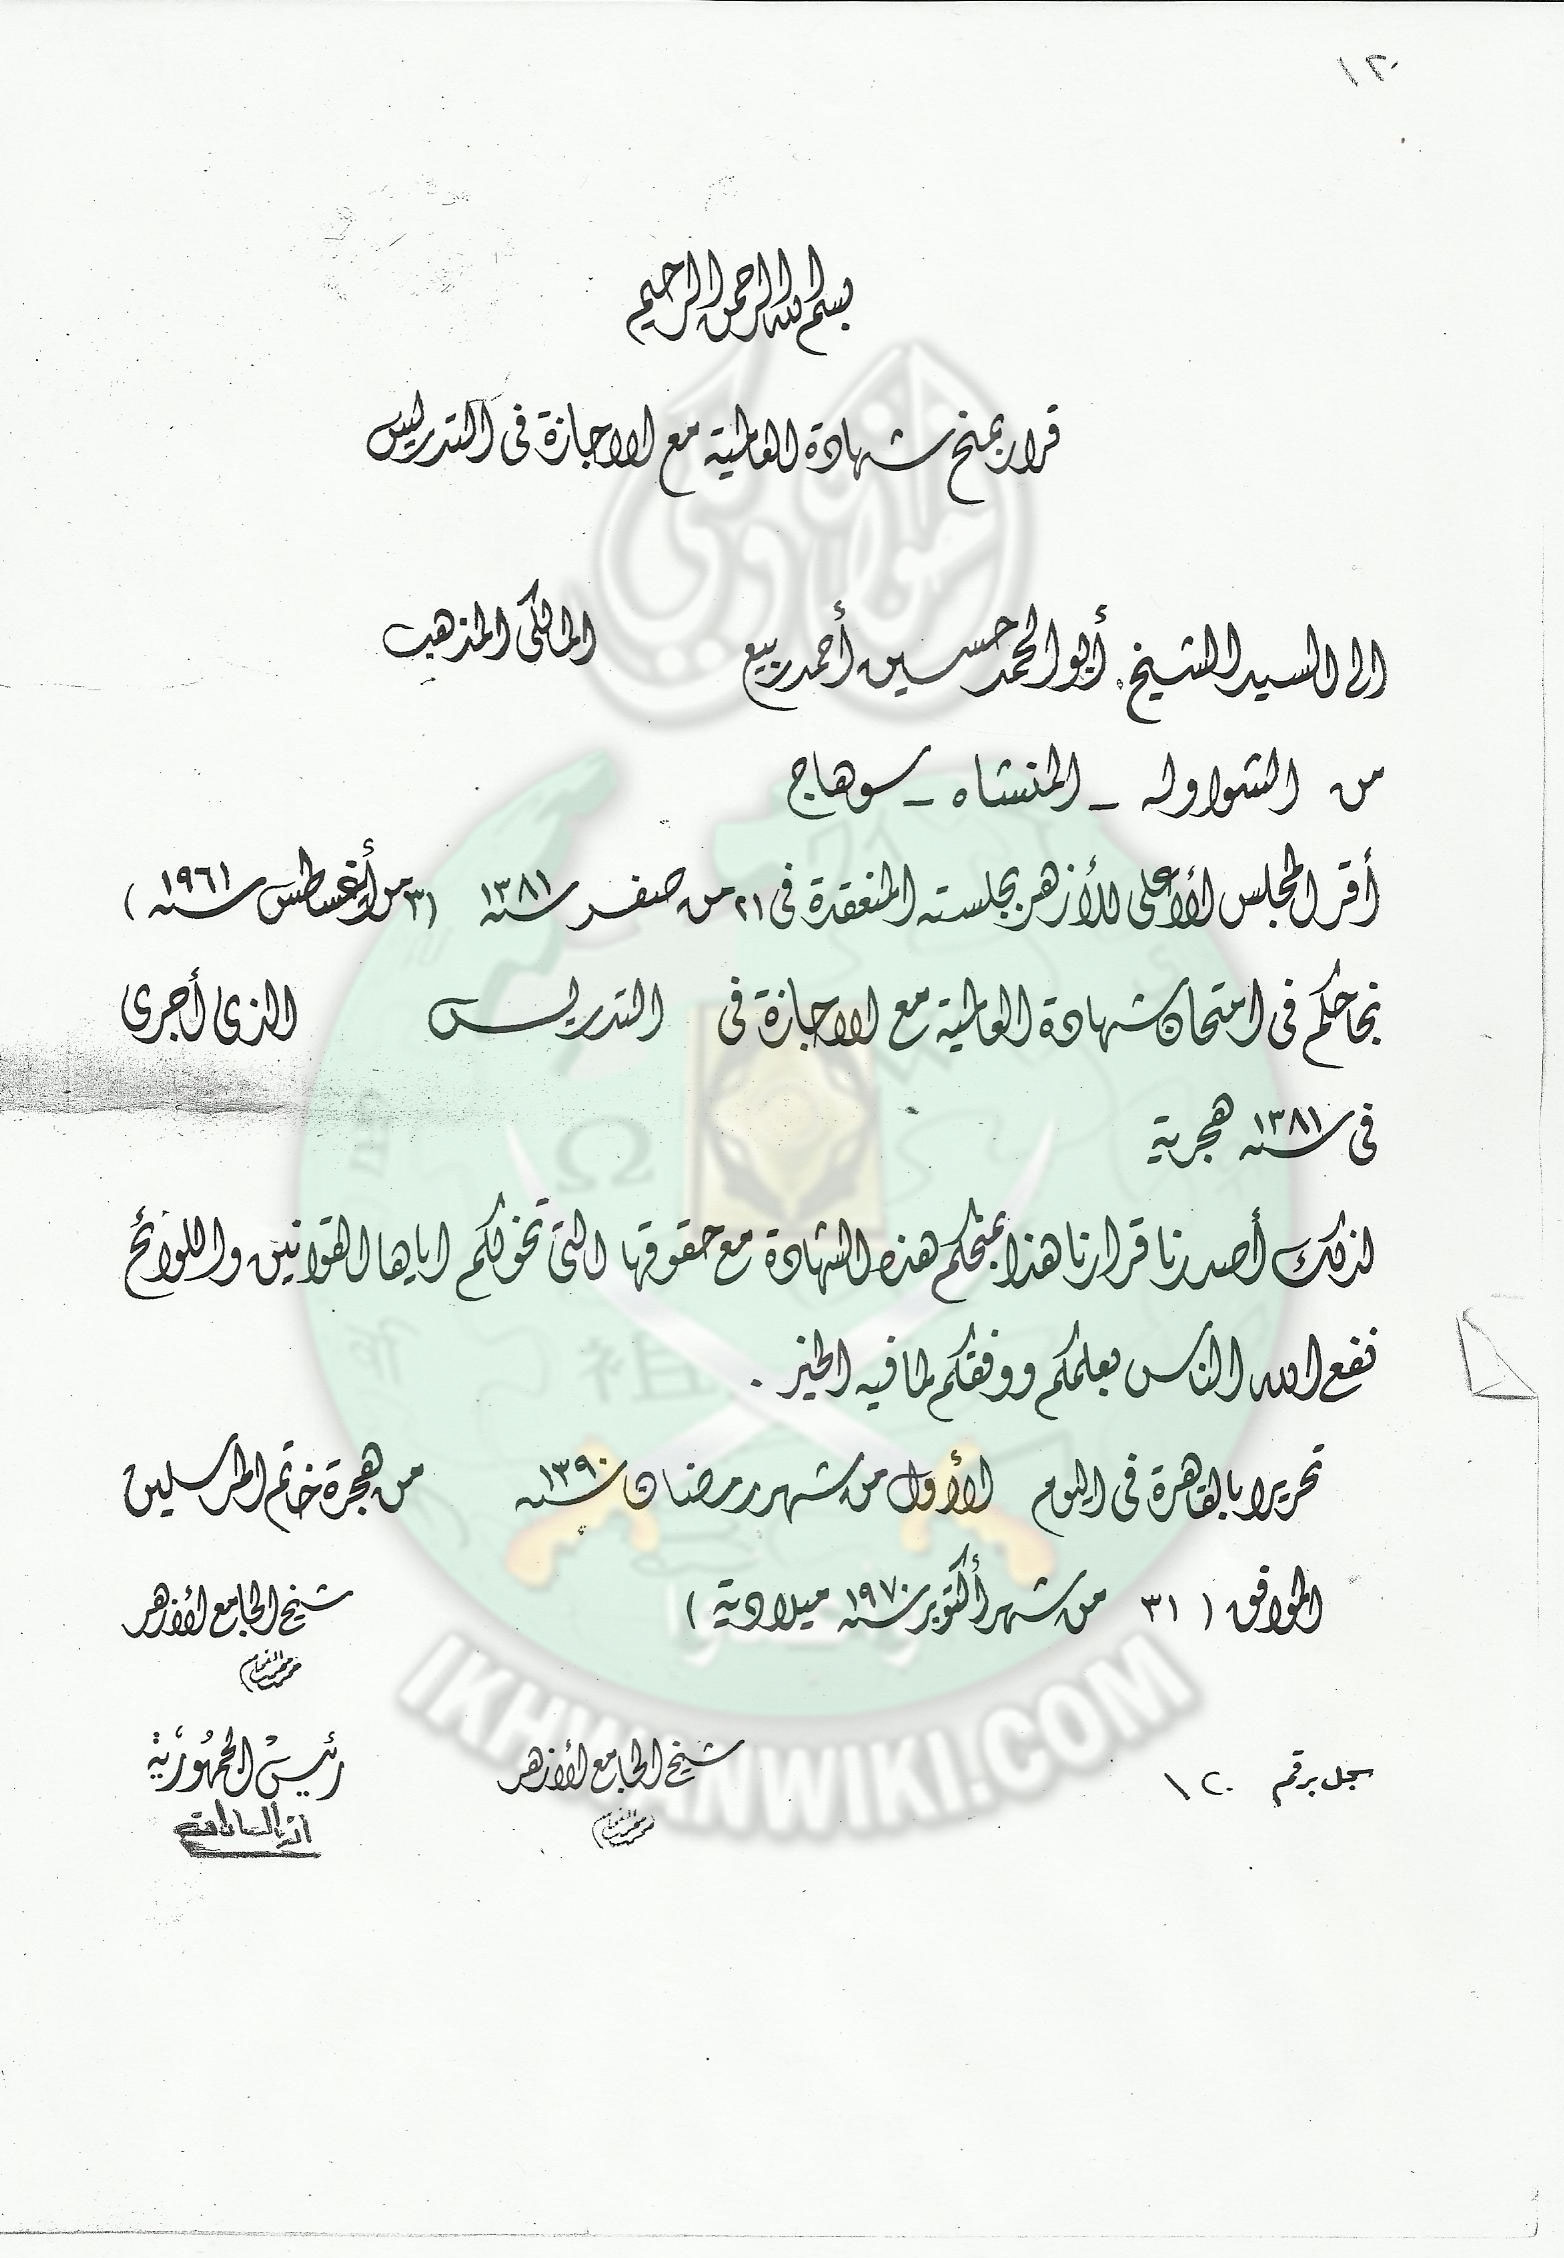 ١٢٠
بسم الله الرحمن الرحيم
قرار بمنح شهادة العالمية مع الاجازة فى التدريس
الى السيد الشيخ أبو الحمد حسين أحمد ربيع المالكى المذهب
من الشواوله - المنشاه - سوهاج
أقر المجلس الأعلى للأزهر بجلسته المنعقدة فى ٢١ من صفر سنة ١٣٨١ (٣ من أغسطس سنة ١٩٦١)
نجاحكم فى امتحان شهادة العالمية مع الاجازة فى التدريس الذى أجرى
فى سنة ١٣٨١ هجرية
لذلك أصدرنا قرارنا هذا بمنحكم هذه الشهادة مع حقوقها التى تخولكم اياها القوانين واللوائح
نفع الله الناس بعلمكم ووفقكم لما فيه الخير .
تحريرا بالقاهرة فى اليوم الأول من شهر رمضان سنة ١٣٩٠ من هجرة خاتم المرسلين
الموافق ( ٣١ من شهر أكتوبر سنة ١٩٧٠ ميلادية )
شيخ الجامع الأزهر
محمد الفحام
سجل برقم ١٢٠ شيخ الجامع الأزهر رئيس الجمهورية
محمد الفحام أنور السادات
إخوان ويكي
IKHWANWIKI.COM